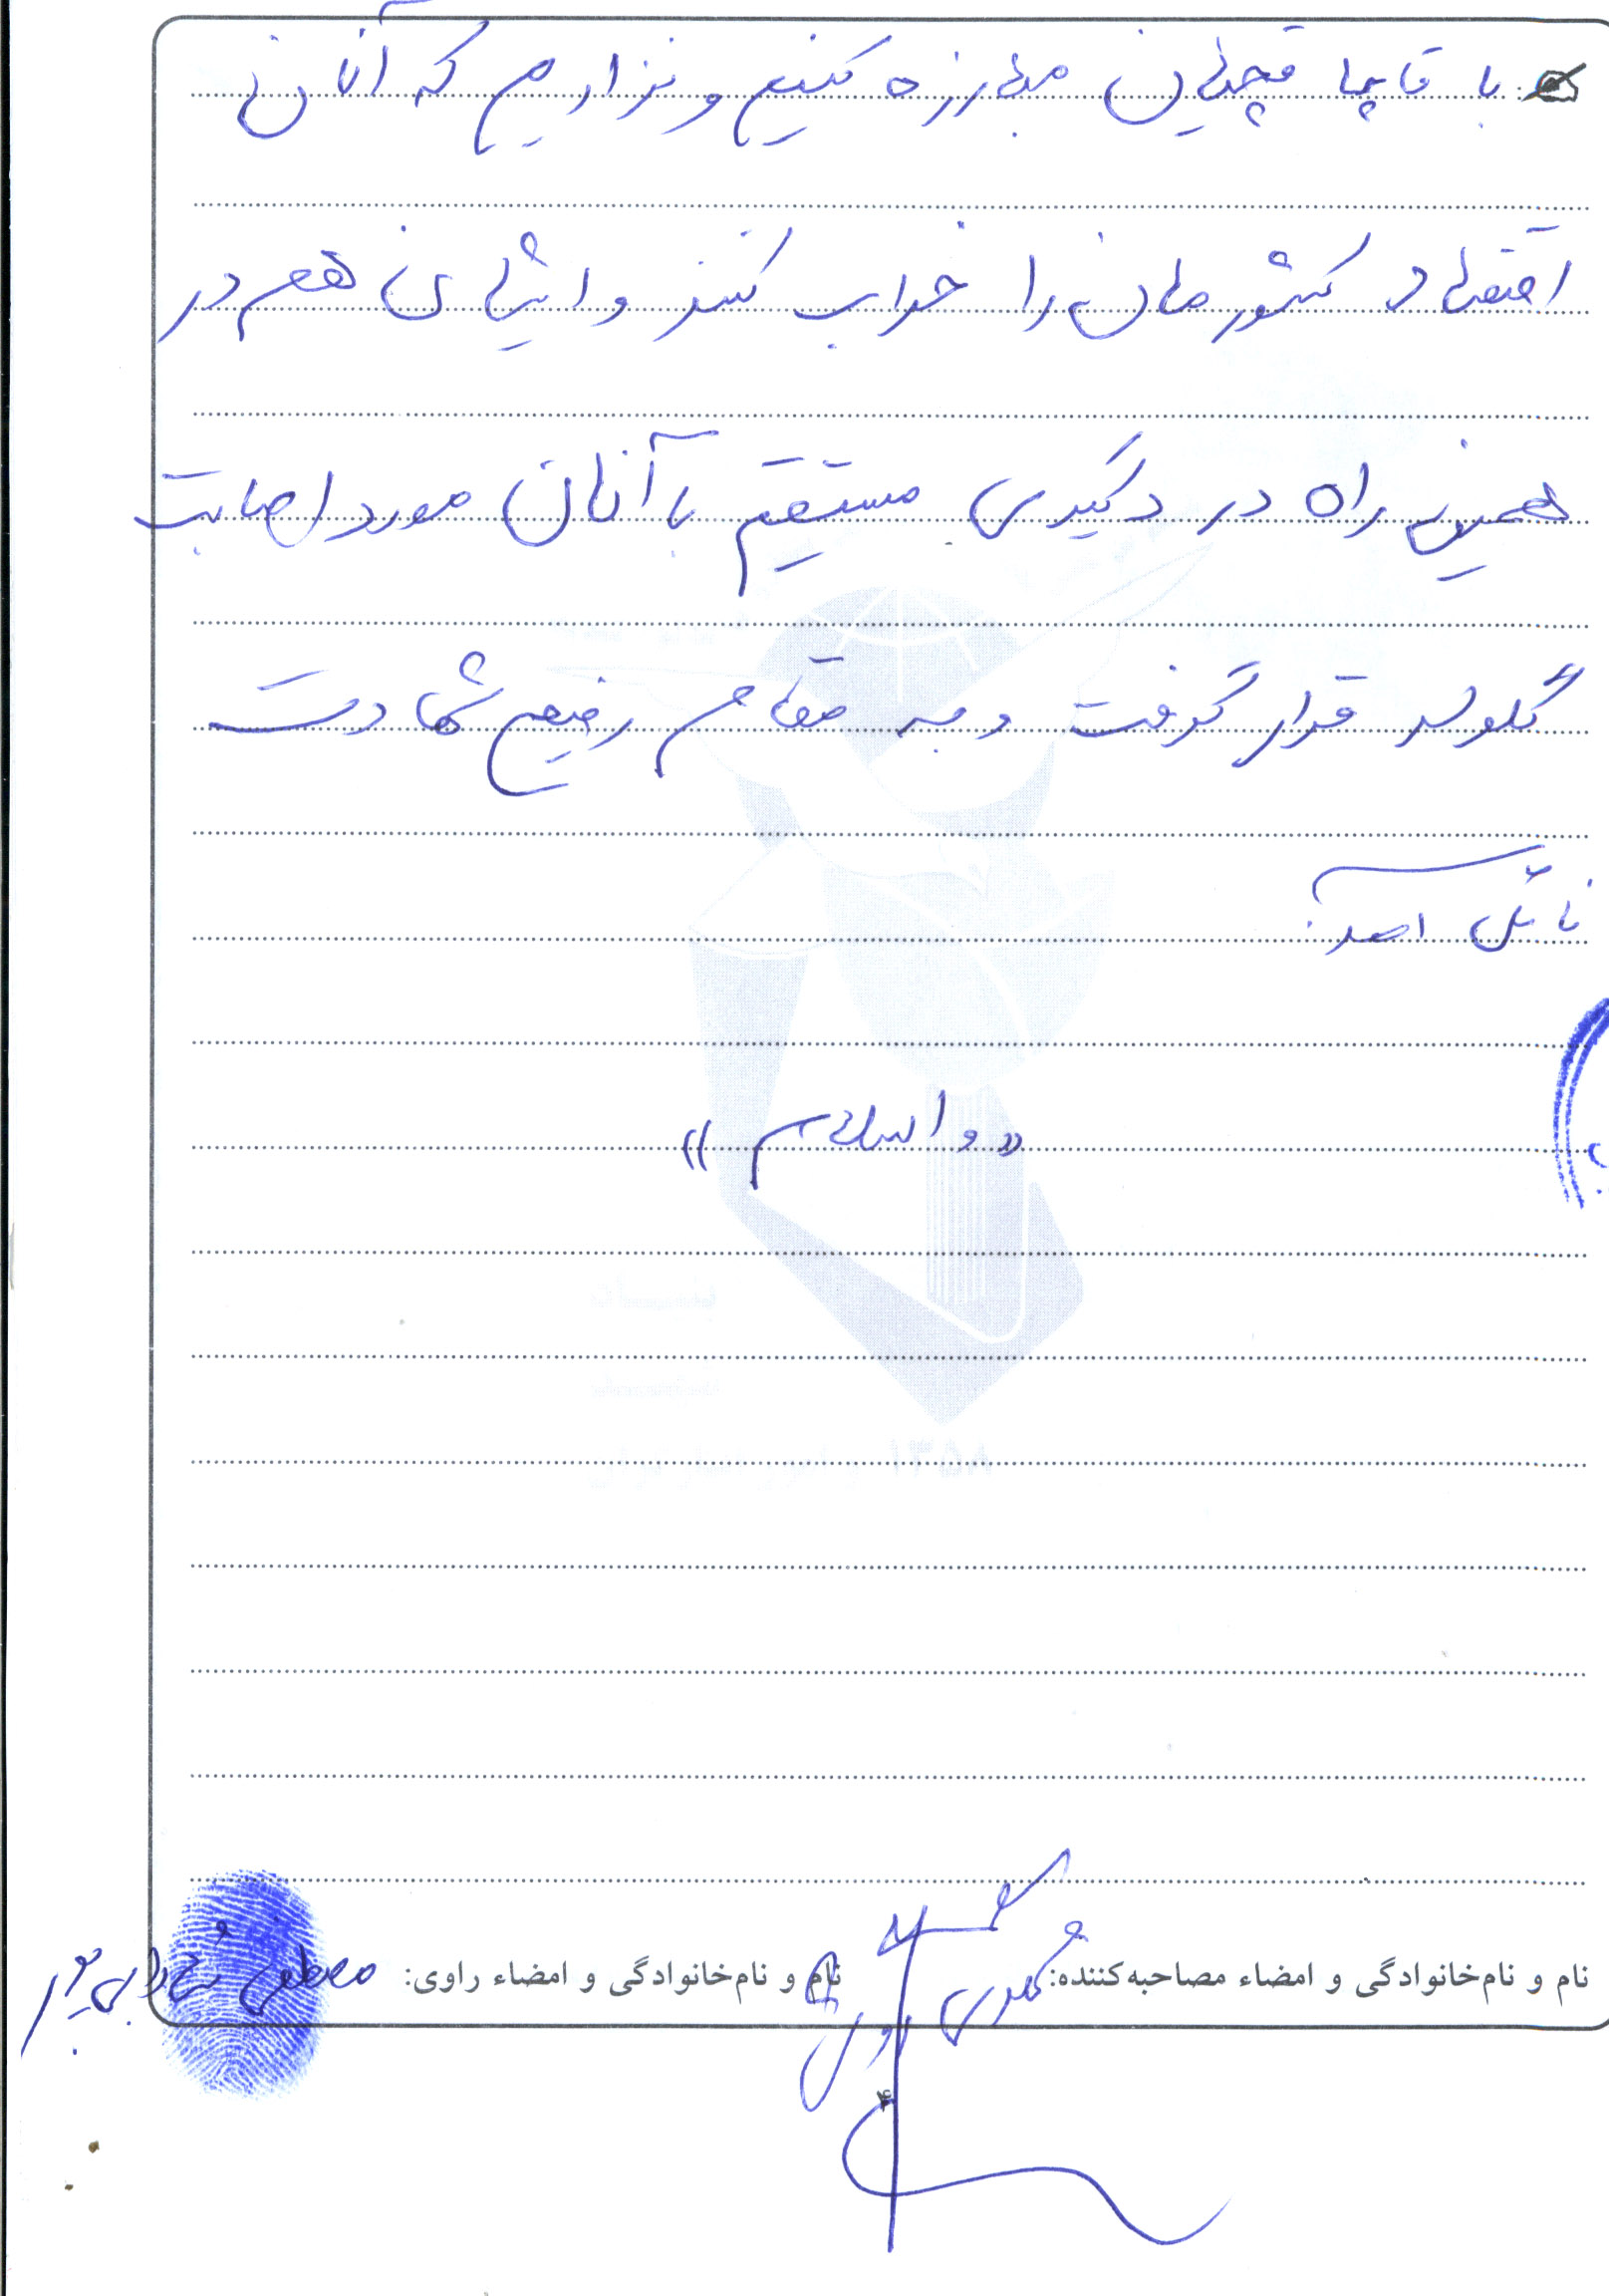 با قاچاقچیان مبارزه کنیم و نزاریم که آنان
اقتصاد کشورمان را خراب کنند و ایشان هم در
همین راه در دگیری مستقیم با آنان مورد اصابت
گلوله قرار گرفت و به مقام رفیع شهادت
نائل آمد.
«والسلام»
نام و نام‌خانوادگی و امضاء مصاحبه‌کننده:
نام و نام‌خانوادگی و امضاء راوی: مصطفی
۴